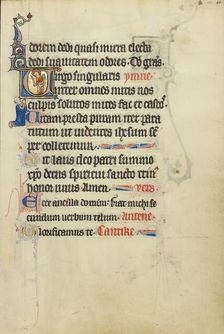 dorem dedi quasi mirra electa
dedi suavitatem odoris. Deo gras.
Virgo singularis ymne
inter omnes mitis nos
culpis solutos mites fac et castos.
Vitam presta puram iter para
tutum ut videntes ihesum semper
colletemur.
Sit laus deo patri summo
xpo decus spiritui sancto tribus
honor unus Amen. vers.
Ecce ancilla domini: fiat michi se
cundum verbum tuum. Antene
Glorificamus te. Cantike